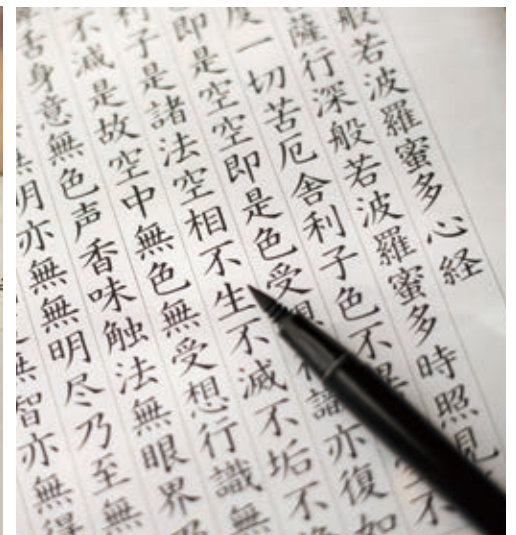 般若波羅蜜多心経
薩行深般若波羅蜜多時照見
度一切苦厄舎利子色不異空不
即是空空即是色受想識亦復如
利子是諸法空相不生不滅不垢不
不滅是故空中無色無受想行識無
舌身意無色声香味触法無眼界
無明亦無無明尽乃至無
無智亦無得